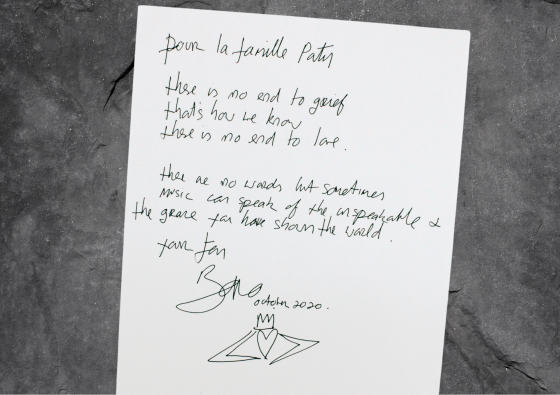 pour la famille Paty
there is no end to grief
that's how we know
there is no end to love.
there are no words but sometimes
music can speak of the unspeakable &
the grace you have shown the world.
your fan
Bono
october 2020.